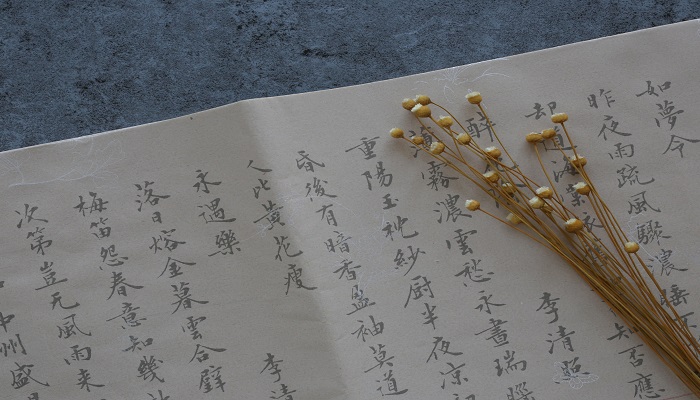 如夢令
昨夜雨疏風驟濃睡不
却道海棠知否應
醉李清照
薄霧濃雲愁永晝瑞腦
重陽玉枕紗厨半夜凉初
昏後有暗香盈袖莫道
人比黃花瘦
永遇樂李清
落日熔金暮雲合璧
梅笛怨春意知幾
次第豈无風雨來
中州盛